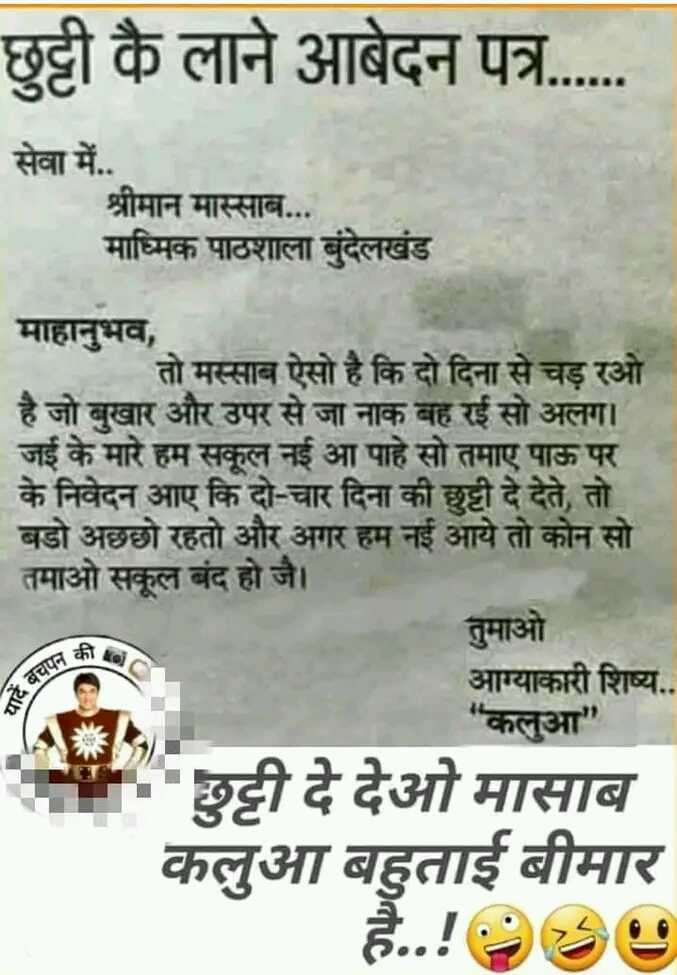 छुट्टी कै लाने आबेदन पत्र......
सेवा में..
श्रीमान मास्साब...
माध्मिक पाठशाला बुंदेलखंड
माहानुभव,
तो मस्साब ऐसो है कि दो दिना से चड़ रओ
है जो बुखार और उपर से जा नाक बह रई सो अलग।
जई के मारे हम सकूल नई आ पाहे सो तमाए पाऊ पर
के निवेदन आए कि दो-चार दिना की छुट्टी दे देते, तो
बडो अछछो रहतो और अगर हम नई आये तो कोन सो
तमाओ सकूल बंद हो जै।
तुमाओ
आग्याकारी शिष्य..
“कलुआ”
यादें बचपन की
छुट्टी दे देओ मासाब
कलुआ बहुताई बीमार
है..!🤪🤣😃